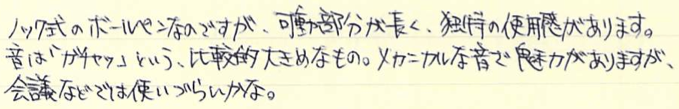 ノック式のボールペンなのですが、可動部分が長く、独特の使用感があります。
音は「ガチャッ」という、比較的大きめなもの。メカニカルな音で魅力がありますが、
会議などでは使いづらいかな。